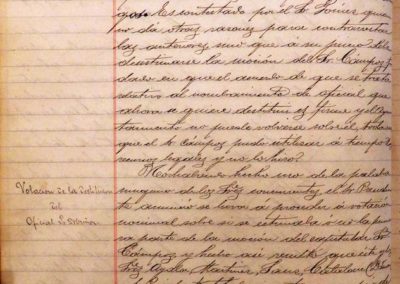 gaso. Es contestado por el Sr. Soines quien
no dá otras razones para contrarrestar
las anteriores sino que a su juicio debe
desestimarse la moción del Sr. Campoy fun
dado en que el acuerdo de que se trata
relativo al nombramiento de oficial que
ahora se quiere destituir es firme y el Ayun
tamiento no puede volverse sobre él, toda vez
que el Sr. Campoy pudo utilizar a tiempo los
recursos legales y no lo hizo.
No habiendo hecho uso de la palabra
ninguno de los Sres. concurrentes el Sr. Presiden
te anunció se iba a proceder a votación
nominal sobre si se estimaba ó no la prime
ra parte de la moción del capitular Sr.
Campoy y hecho así resultó que
Sres. Ayala, Martinez, Sanz,
Votación de la destitucion
del
Oficial